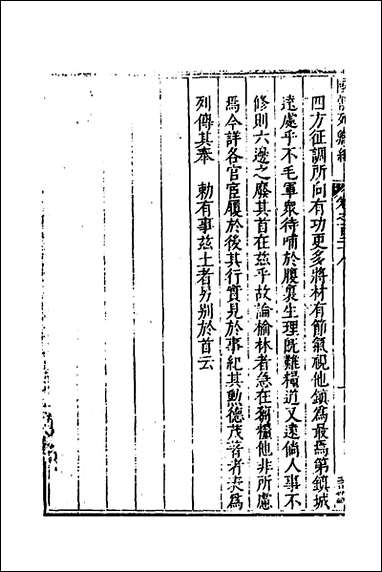 四方征調所向有功更多將材有節氣視他鎮為最焉第鎮城
遠處乎不毛軍眾待哺於腹裏生理既難糧道又遠倘人事不
修則六邊之廢其首在茲乎故論榆林者急在芻糧他非所慮
焉今詳各官宦履於後其行實見於事紀其勳德茂著者夫為
列傳其奉 勅有事茲土者另別於首云